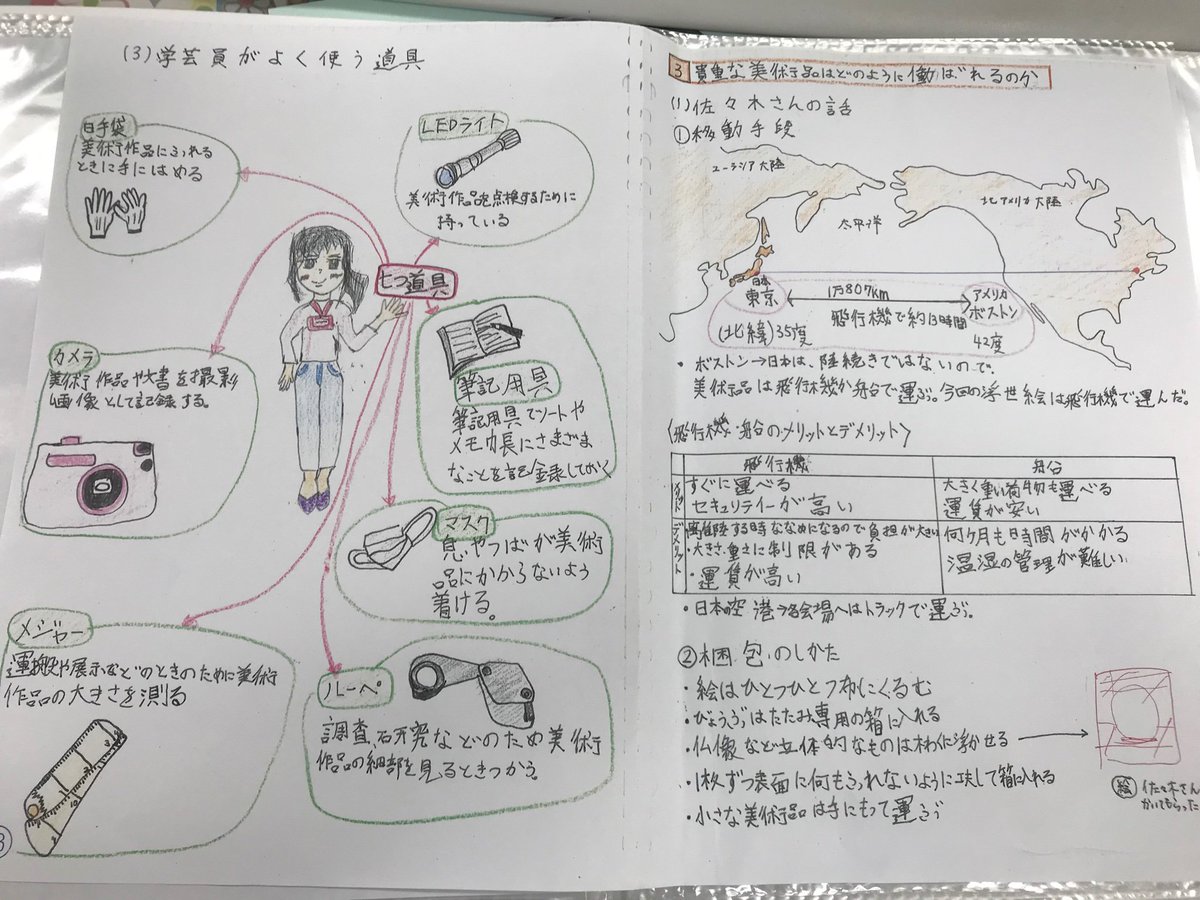 (3)学芸員がよく使う道具
白手袋
美術作品にふれる
ときに手にはめる
LEDライト
美術作品を点検するために
持っている
七つ道具
カメラ
美術作品や文書を撮影
画像として記録する。
筆記用具
筆記用具でノートや
メモ帳にさまざま
なことを記録しておく
マスク
息やつばが美術
品にかからないよう
着ける。
メジャー
運搬や展示などのときのために美術
作品の大きさを測る
ルーペ
調査、研究などのため美術
作品の細部を見るときつかう。
3 貴重な美術品はどのように働ばれるのか
(1)佐々木さんの話
①移動手段
ユーラシア大陸
北アメリカ大陸
太平洋
日本
東京
1万807km
アメリカ
ボストン
飛行機で約13時間
(北緯)35度
42度
・ボストン→日本は、陸続きではないので、
美術品は飛行機か船で運ぶ。今回の浮世絵は飛行機で運んだ。
〈飛行機・船のメリットとデメリット〉
飛行機
船
メリット
すぐに運べる
セキュリティーが高い
大きく重い荷物も運べる
運賃が安い
デメリット
離着陸する時ななめになるので負担が大きい
・大きさ・重さに制限がある
・運賃が高い
何ヶ月も時間がかかる
温湿の管理が難しい
・日本の空港→各会場へはトラックで運ぶ。
②梱包のしかた
・絵はひとつひとつ布にくるむ
・びょうぶはたたみ専用の箱に入れる
・仏像など立体的なものは木わくに浮かせる
・1枚ずつ表面に何もふれないように工夫して箱に入れる
・小さな美術品は手にもって運ぶ
絵 佐々木さん
かいてもらった